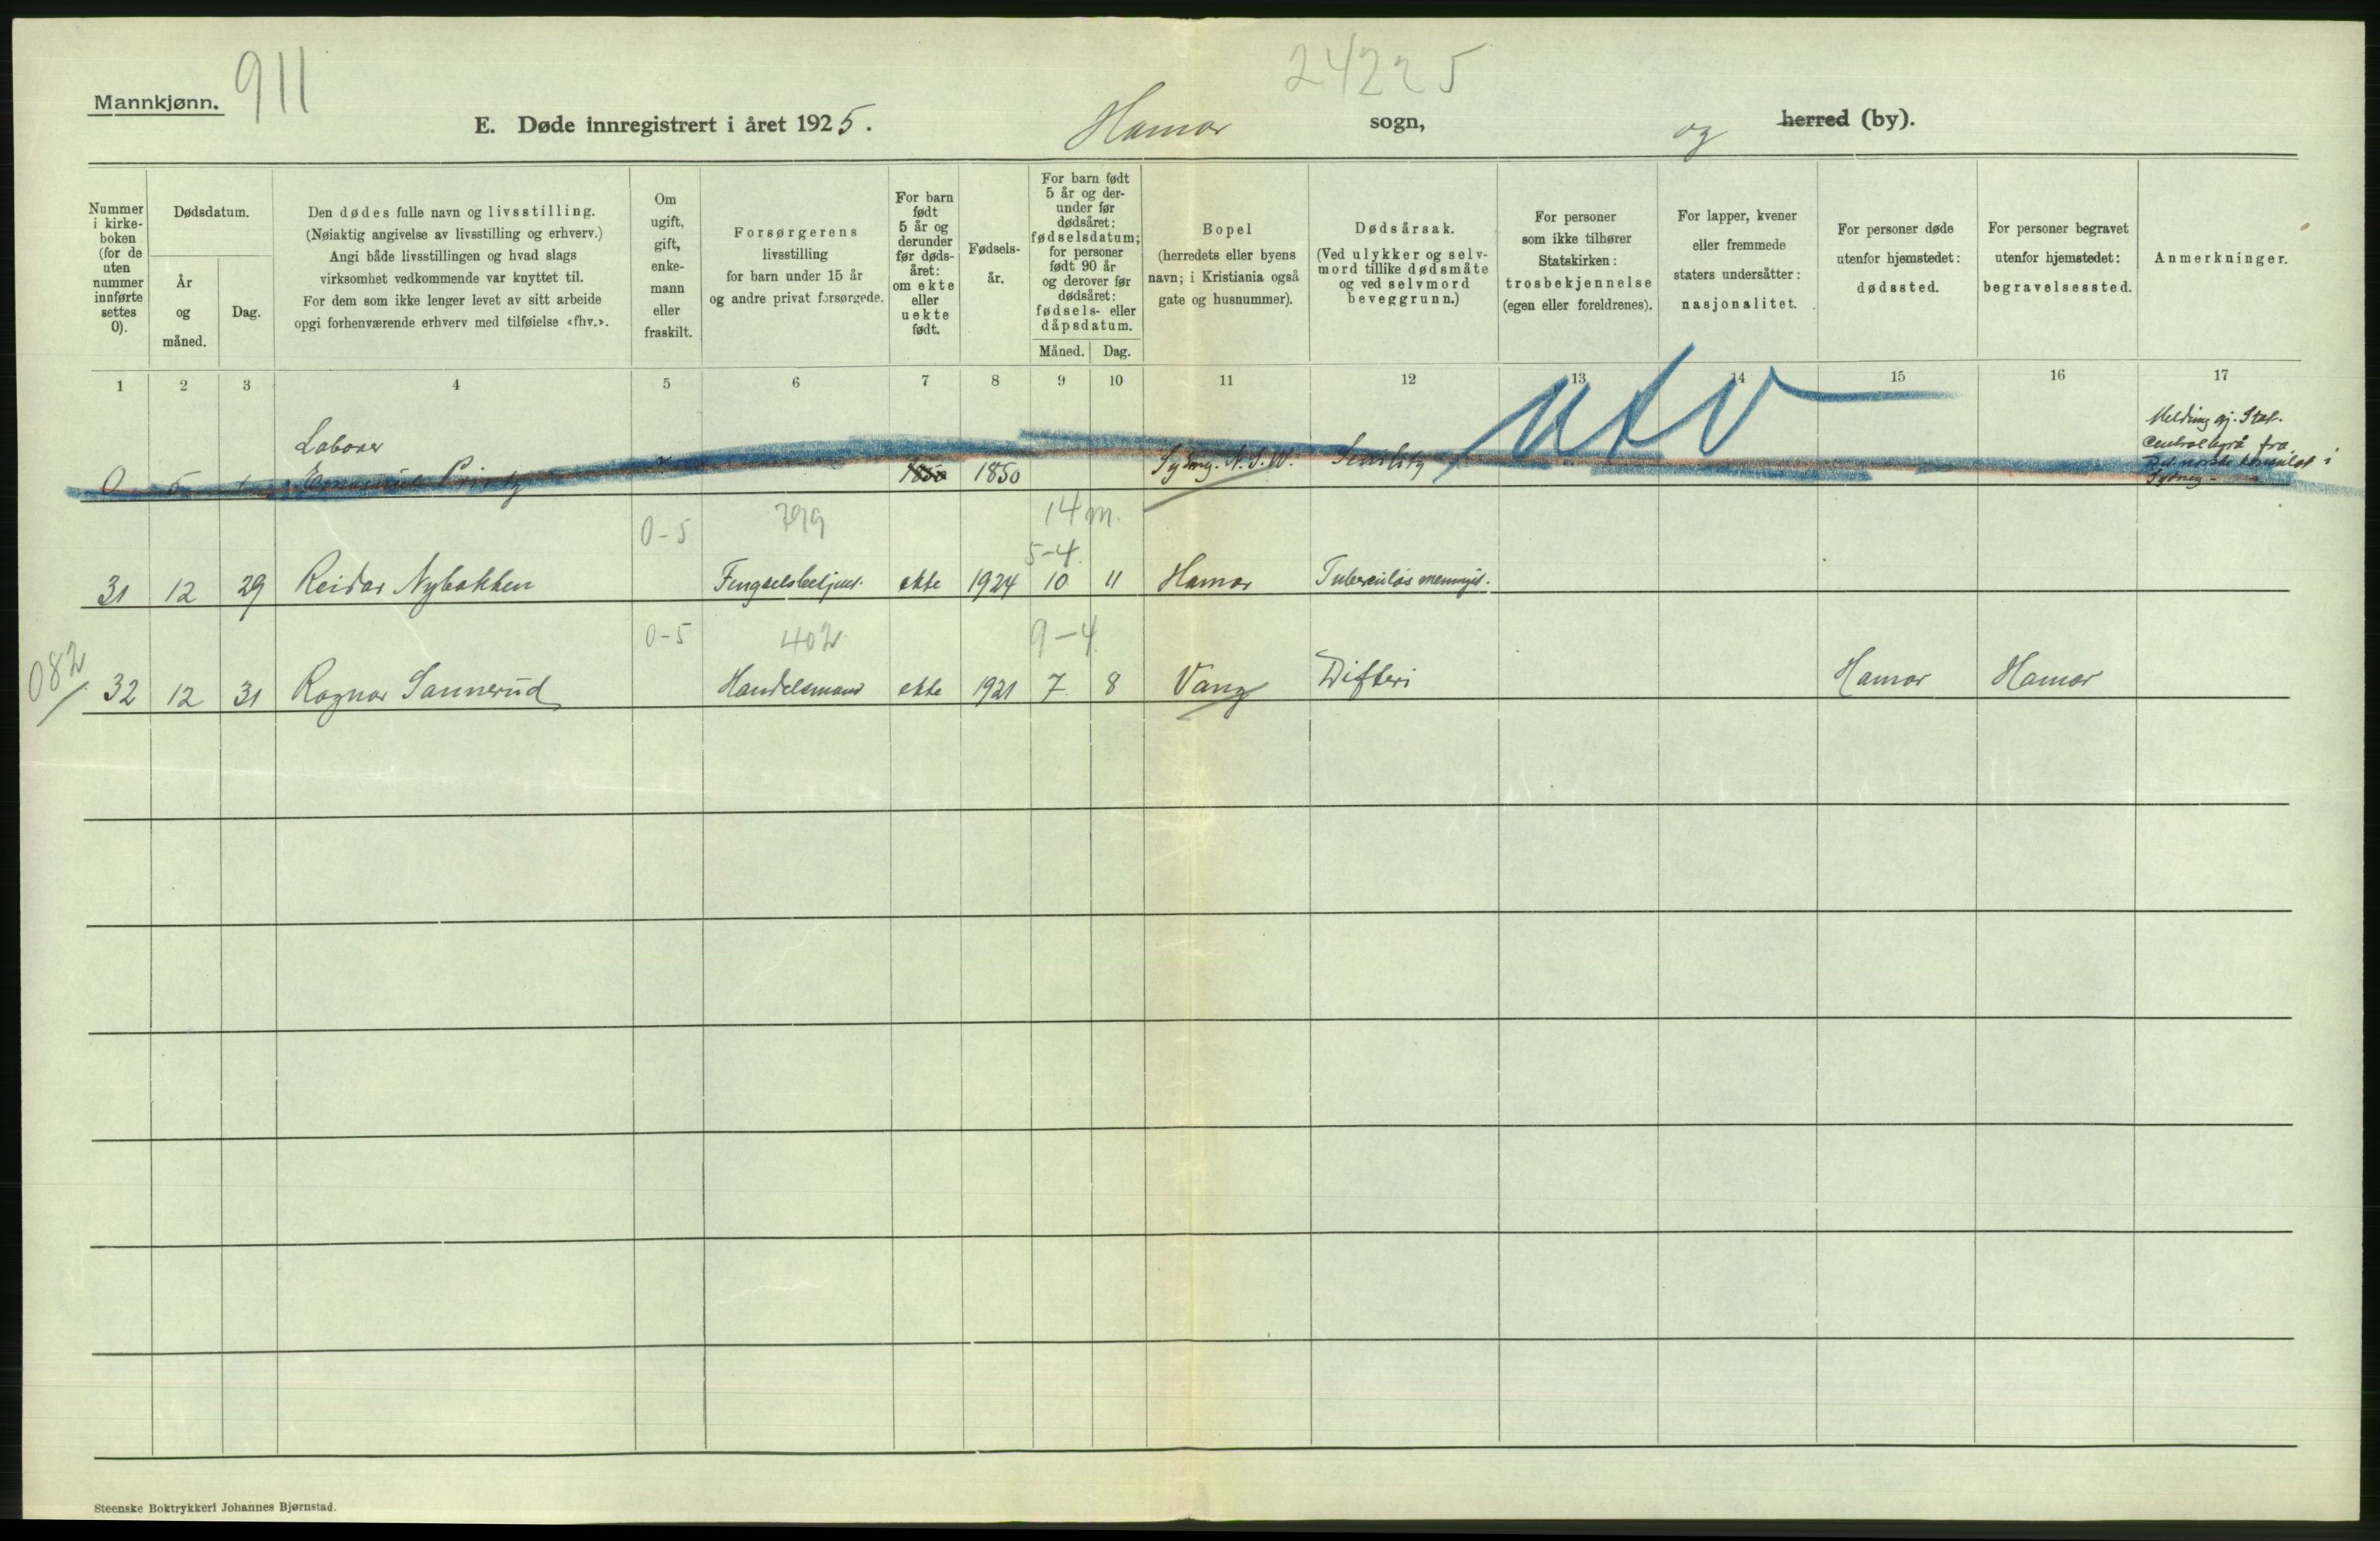 Mannkjønn.
911
24225
E. Døde innregistrert i året 1925.
Hamar sogn,
og herred (by).
Nummer i kirke-boken (for de uten nummer innførte settes 0).
Dødsdatum.
År og måned.
Dag.
Den dødes fulle navn og livsstilling.
(Nøiaktig angivelse av livsstilling og erhverv.)
Angi både livsstillingen og hvad slags
virksomhet vedkommende var knyttet til.
For dem som ikke lenger levet av sitt arbeide
opgi forhenværende erhverv med tilføielse «fhv.».
Om ugift, gift, enke-mann eller fraskilt.
Forsørgerens
livsstilling
for barn under 15 år
og andre privat forsørgede.
For barn født 5 år og derunder før døds-året: om ekte eller uekte født.
Fødsels-år.
For barn født 5 år og der-under før dødsåret: fødselsdatum; for personer født 90 år og derover før dødsåret: fødsels- eller dåpsdatum.
Måned.
Dag.
Bopel
(herredets eller byens
navn; i Kristiania også
gate og husnummer).
Dødsårsak.
(Ved ulykker og selv-
mord tillike dødsmåte
og ved selvmord
beveggrunn.)
For personer
som ikke tilhører
Statskirken:
trosbekjennelse
(egen eller foreldrenes).
For lapper, kvener
eller fremmede
staters undersåtter:
nasjonalitet.
For personer døde
utenfor hjemstedet:
dødssted.
For personer begravet
utenfor hjemstedet:
begravelsessted.
Anmerkninger.
1 2 3 4 5 6 7 8 9 10 11 12 13 14 15 16 17
utv
Laborer
0 5 1850 1850 Sydney. N.S.W. Senility
Melding gj. Stat.
Centralbyrå fra
Det norske konsulat i
Sydney-
0-5 799 14 m.
5-4.
31 12 29 Reidar Nybakken Fengselsbetjent. ekte 1924 10 11 Hamar Tuberculøs meningit.
0-5 402 9-4
082
32 12 31 Ragnar Sannerud Handelsmand ekte 1921 7 8 Vang Difteri Hamar Hamar
Steenske Boktrykkeri Johannes Bjørnstad.